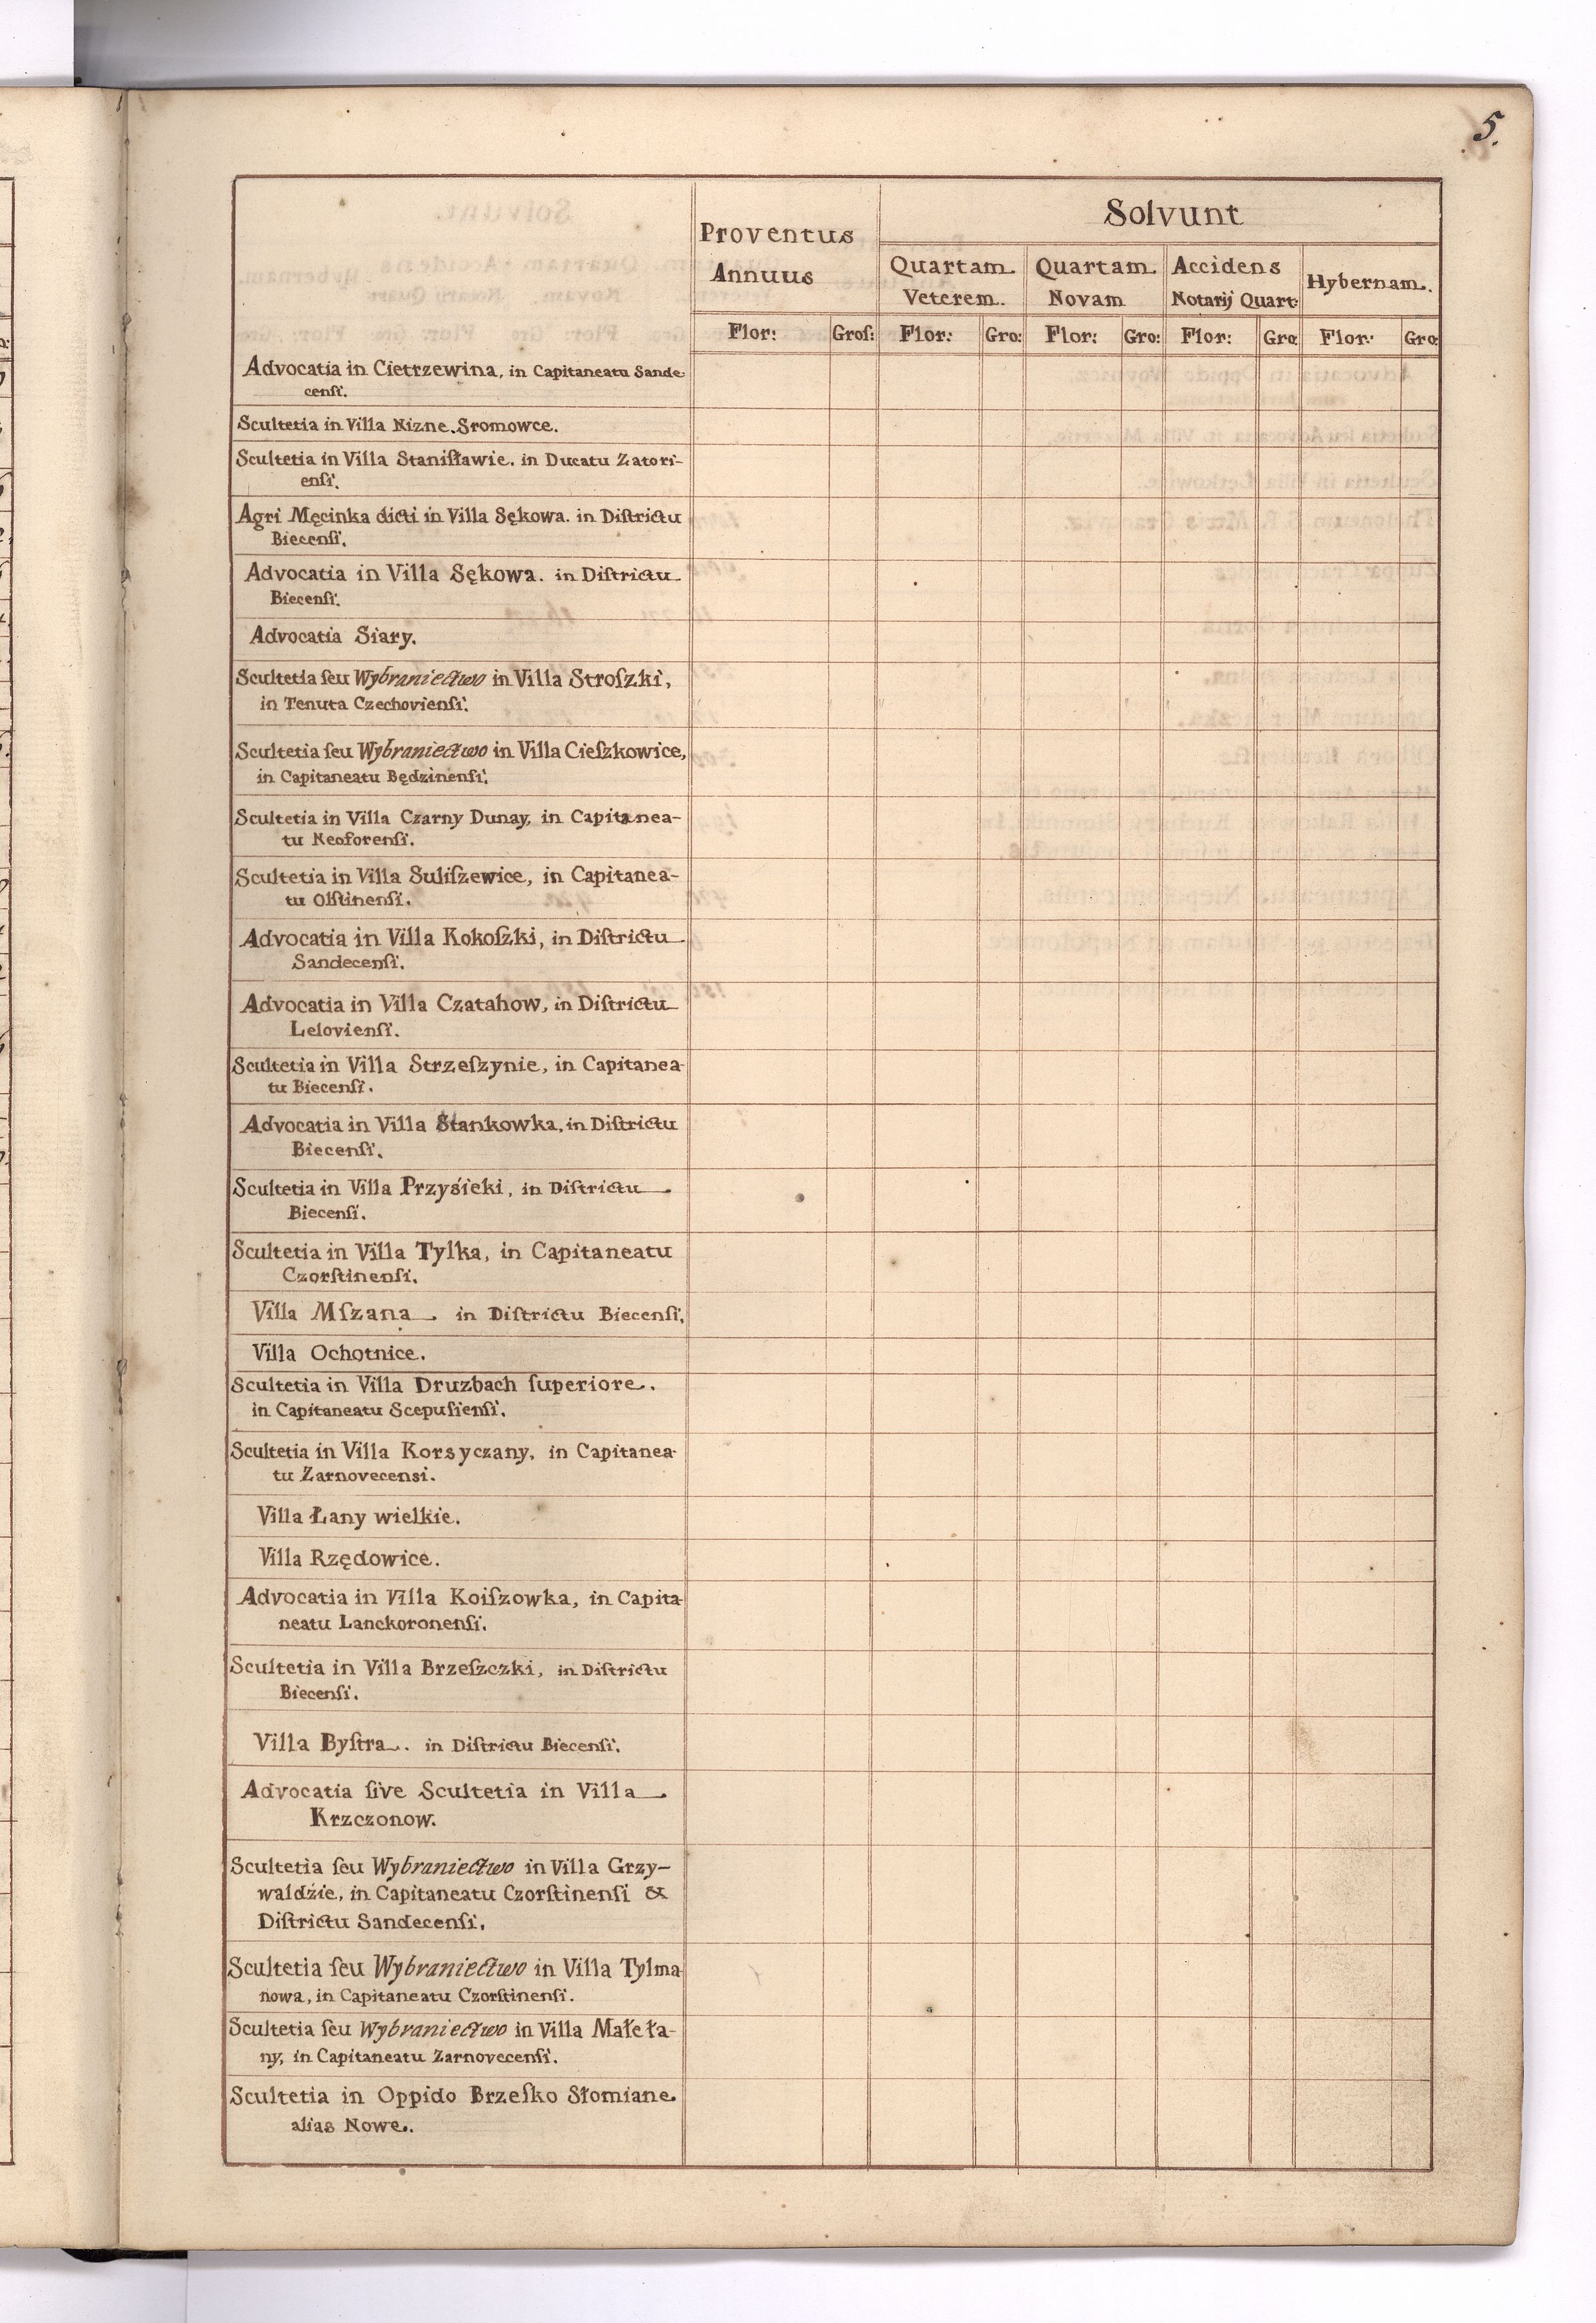 5.
Solvunt
Proventus
Annuus
Quartam
Veterem.
Quartam
Novam
Accidens
Notarij Quart:
Hybernam.
Flor: Groſ: Flor: Gro: Flor: Gro: Flor: Gro Flor: Gro:
Advocatia in Cietrzewina, in Capitaneatu Sande
cenſi.
Scultetia in Villa Nizne Sromowce.
Scultetia in Villa Staniſławie. in Ducatu Zatori-
enſi.
Agri Męcinka dicti in Villa Sękowa. in Diſtrictu
Biecenſi.
Advocatia in Villa Sękowa. in Diſtrictu
Biecenſi.
Advocatia Siary.
Scultetia ſeu Wybraniectwo in Villa Stroſzki,
in Tenuta Czechovienſi.
Scultetia ſeu Wybraniectwo in Villa Cieſzkowice,
in Capitaneatu Będzinenſi.
Scultetia in Villa Czarny Dunay, in Capitanea-
tu Neoforenſi.
Scultetia in Villa Suliſzewice, in Capitanea-
tu Olſtinenſi.
Advocatia in Villa Kokoſzki, in Diſtrictu
Sandecenſi.
Advocatia in Villa Czatahow, in Diſtrictu
Lelovienſi.
Scultetia in Villa Strzeſzynie, in Capitanea-
tu Biecenſi.
Advocatia in Villa Stankowka, in Diſtrictu
Biecenſi.
Scultetia in Villa Przyśieki, in Diſtrictu
Biecenſi.
Scultetia in Villa Tylka, in Capitaneatu
Czorſtinenſi.
Villa Mſzana. in Diſtrictu Biecenſi.
Villa Ochotnice.
Scultetia in Villa Druzbach ſuperiore.
in Capitaneatu Scepuſienſi.
Scultetia in Villa Korsyczany, in Capitanea-
tu Zarnovecensi.
Villa Łany wielkie.
Villa Rzędowice.
Advocatia in Villa Koiſzowka, in Capita-
neatu Lanckoronenſi.
Scultetia in Villa Brzeſzczki, in Diſtrictu
Biecenſi.
Villa Byſtra. in Diſtrictu Biecenſi.
Advocatia ſive Scultetia in Villa
Krzczonow.
Scultetia ſeu Wybraniectwo in Villa Grzy-
waldźie, in Capitaneatu Czorſtinenſi &
Diſtrictu Sandecenſi.
Scultetia ſeu Wybraniectwo in Villa Tylma
nowa, in Capitaneatu Czorſtinenſi.
Scultetia ſeu Wybraniectwo in Villa Małe ła-
ny, in Capitaneatu Zarnovecenſi.
Scultetia in Oppido Brzeſko Słomiane
alias Nowe.